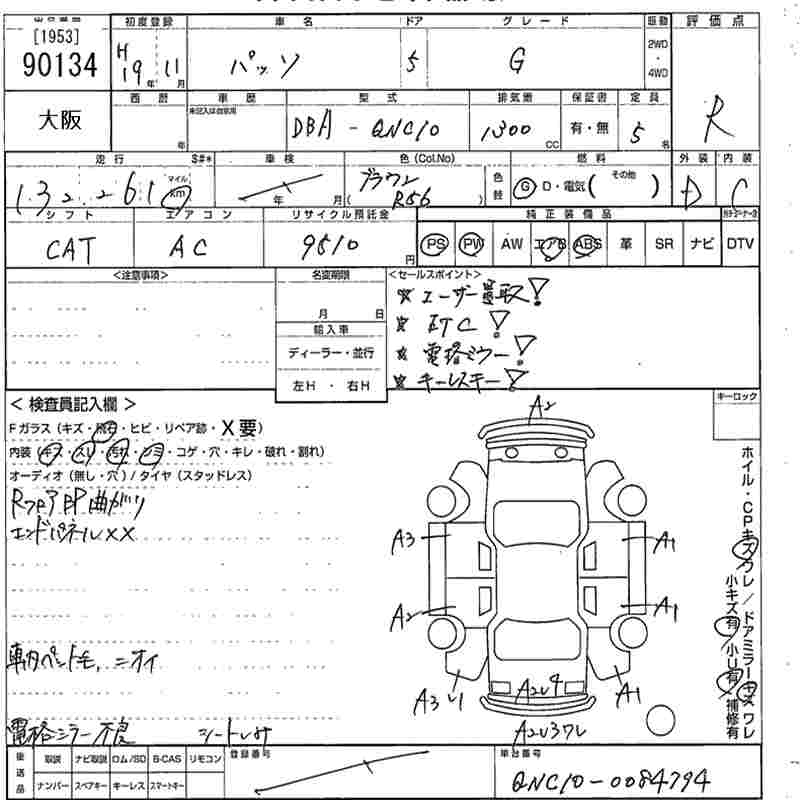 [1953]
90134
大阪
初度登録
H 19年 11月
車名
パッソ
ドア
5
グレード
G
駆動
2WD
4WD
評価点
R
西暦
年
車歴
未記入は自家用
型式
DBA-QNC10
排気量
1300 CC
保証書
有・無
定員
5名
走行
S#*
132,261
マイル
km
車検
年 月
色 (Col.No)
ブラウン
R56
色替
燃料
G D・電気( その他 )
外装
D
内装
C
シフト
CAT
エアコン
AC
リサイクル預託金
9510円
純正装備品
PS PW AW エアB ABS 革 SR ナビ DTV
<注意事項>
名変期限
月 日
輸入車
ディーラー・並行
左H・右H
<セールスポイント>
☆ユーザー買取!
☆ETC!
☆電格ミラー!
☆キーレスキー!
<検査員記入欄>
Fガラス (キズ・飛石・ヒビ・リペア跡・X要)
内装 (キズ・スレ・汚れ・シミ・コゲ・穴・キレ・破れ・割れ)
オーディオ (無し・穴) / タイヤ (スタッドレス)
RフロアBP曲がり
エンドパネルXX
車内ペンキモ,ニオイ
電格ミラー不良 シートレサ
キーロック
ホイル・CPキズワレ/ドアミラーキズワレ
小キズ有 小U有 補修有
A2
A3
A1
A2
A1
A3U1
A2U4
A1
A2U3ワレ
後送品
取説 ナビ取説 ロム/SD B-CAS リモコン
ナンバー スペアキー キーレス スマートキー
登録番号
車台番号
QNC10-0084794